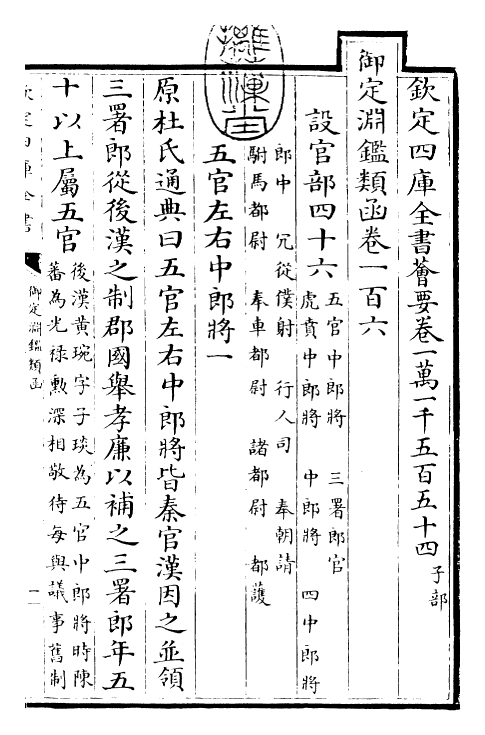 欽定四庫全書薈要卷一萬一千五百五十四 子部
御定淵鑑類函卷一百六
設官部四十六 五官中郎將 三署郎官
虎賁中郎將 中郎將 四中郎將
郎中 冗從僕射 行人司 奉朝請
駙馬都尉 奉車都尉 諸都尉 都護
五官左右中郎將一
原杜氏通典曰五官左右中郎將皆秦官漢因之並領
三署郎從後漢之制郡國舉孝廉以補之三署郎年五
十以上屬五官 後漢黃琬字子琰為五官中郎將時陳
蕃為光祿勲深相敬待每與議事舊制
欽定四庫全書
御定淵鑑類函
一